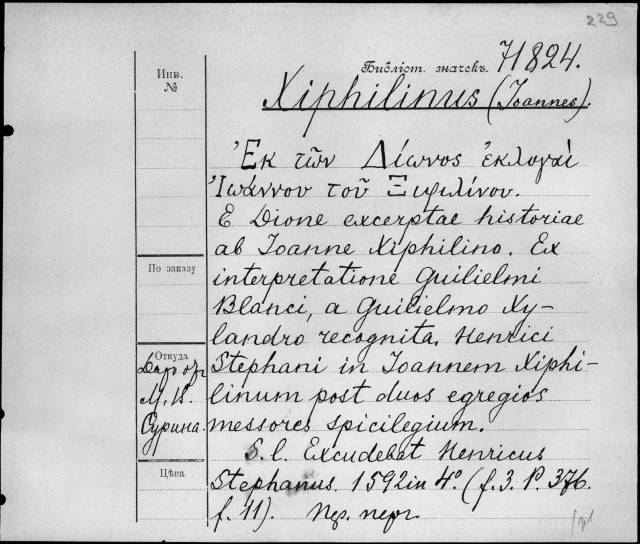 229
Библіот. значекъ. 71824.
Инв.
№
Xiphilinus (Joannes).
Ἐκ τῶν Δίωνος ἐκλογαὶ
Ἰωάννου τοῦ Ξιφιλίνου.
E Dione excerptae historiae
ab Joanne Xiphilino. Ex
По заказу
interpretatione Guilielmi
Blanci, a Guilielmo Xy-
landro recognita. Henrici
Откуда
Stephani in Joannem Xiphi-
М. К.
linum post duos egregios
Сурина.
messores spicilegium.
S. l. Excudebat Henricus
Цѣна
Stephanus. 1592 in 4º. (f. 3. P. 376.
f. 11). перг.